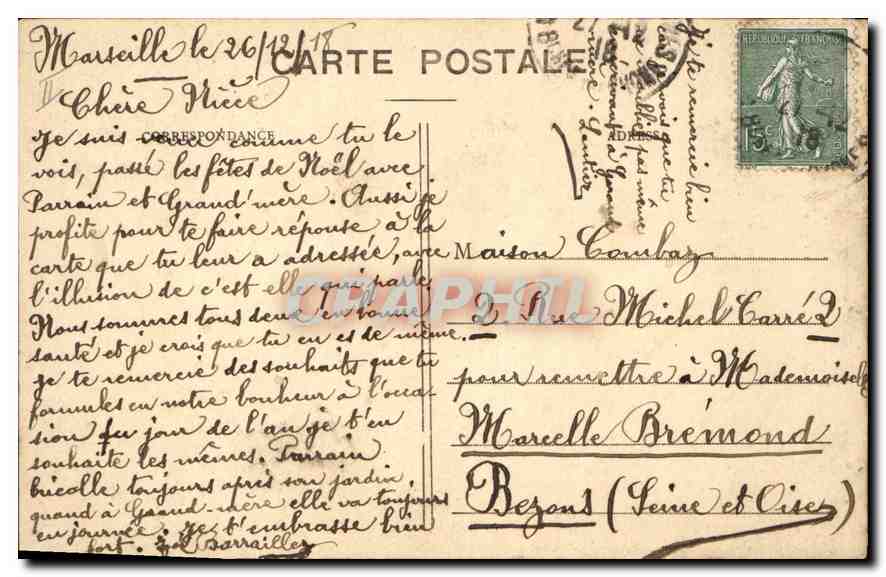 Marseille le 26/12/18
CARTE POSTALE
CORRESPONDANCE
ADRESSE
Chère Nièce
Je suis venu comme tu le
vois, passé les fêtes de Noël avec
Parrain et Grand'mère. Aussi je
profite pour te faire réponse à la
carte que tu leur a adressée, avec
l'illusion de c'est elle qui parle.
Nous sommes tous deux en bonne
santé et je crois que tu en es de même.
je te remercie des souhaits que tu
formules en notre bonheur à l'occa-
sion du jour de l'an je t'en
souhaite les mêmes. Parrain
bricolle toujours après son jardin,
quand à Grand-mère elle va toujours
en journée. Je t'embrasse bien
fort. Barrailler
Je te remercie bien
car je vois que tu
ne oublies pas même
en écrivant à Grand
mère.
Maison Combaz
2 Rue Michel Carré 2
pour remettre à Mademoiselle
Marcelle Brémond
Bezons (Seine et Oise)
REPUBLIQUE FRANÇAISE
15c
CPAPHIL